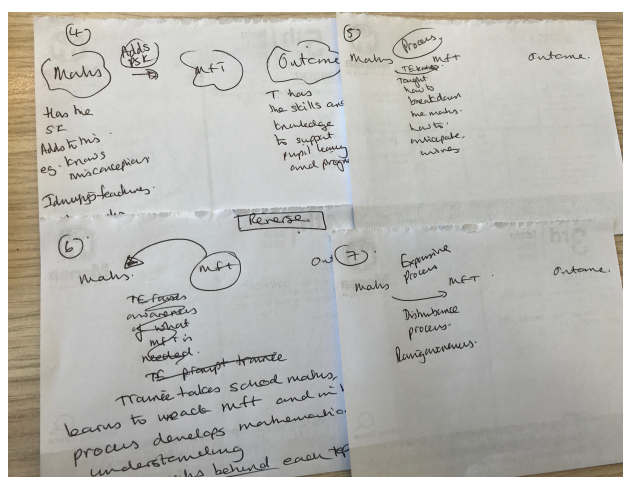 4
Adds
PSK
Maths
MFT
Outcome
Has the
SK
Adds to this
eg. knows
misconceptions
T has
the skills and
knowledge
to support
pupil learning
and progr
5
Process.
Maths MFT Outcome.
Taught
how to
breakdown
the maths.
how to
anticipate
Reverse
6
Maths.
MFT
Out
TE raises
awareness
of what
MFT is
needed.
TE prompt trainee
Trainee takes school maths,
learns to unpack MFT and in
process develops mathematica
understanding
behind each top
7
Expansive
process
Maths MFT. Outcome.
Disturbance
process.